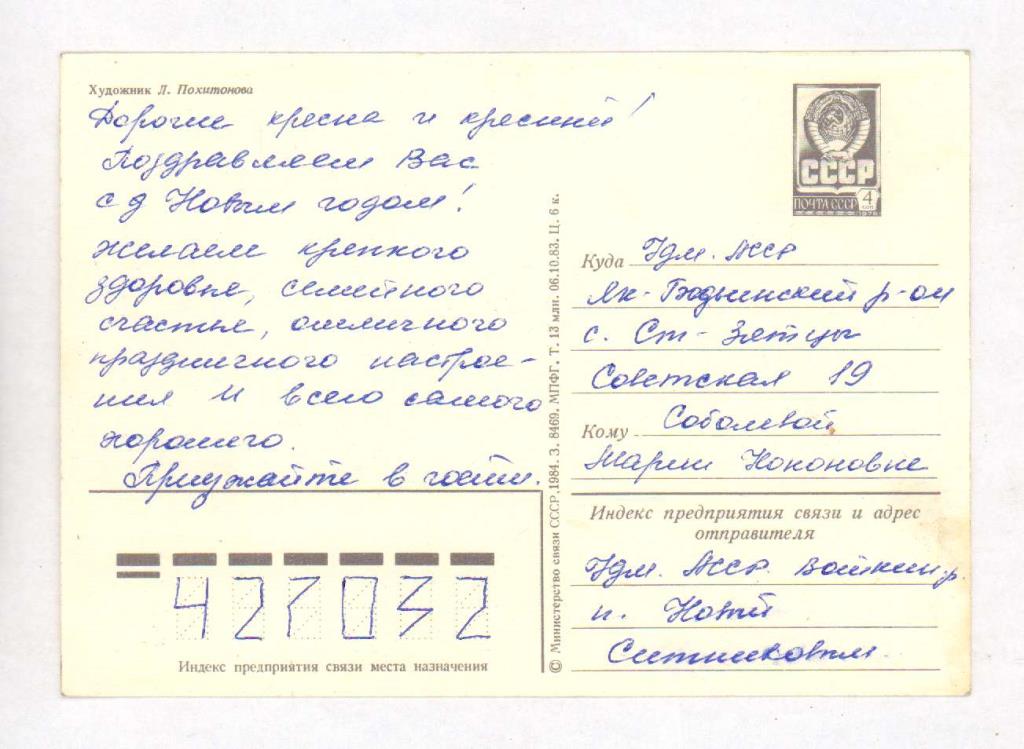 Художник Л. Похитонова
Дорогие кресна и кресный!
Поздравляем Вас
с д Новым годом!
желаем крепкого
здоровье, семейного
счастье, отличного
праздничного настрое-
ния и всего самого
хорошего.
Приужайте в гости.
422032
Индекс предприятия связи места назначения
© Министерство связи СССР, 1984. З. 8469. МПФГ. Т. 13 млн. 06.10.83. Ц. 6 к.
СССР
ПОЧТА СССР 4 коп
1978
Куда Удм. АССР
Як-Бодьинский р-он
с. Ст-Зятцы
Советская 19
Кому Соболевой
Марии Кононовне
Индекс предприятия связи и адрес
отправителя
Удм. АССР р.
п. Новый